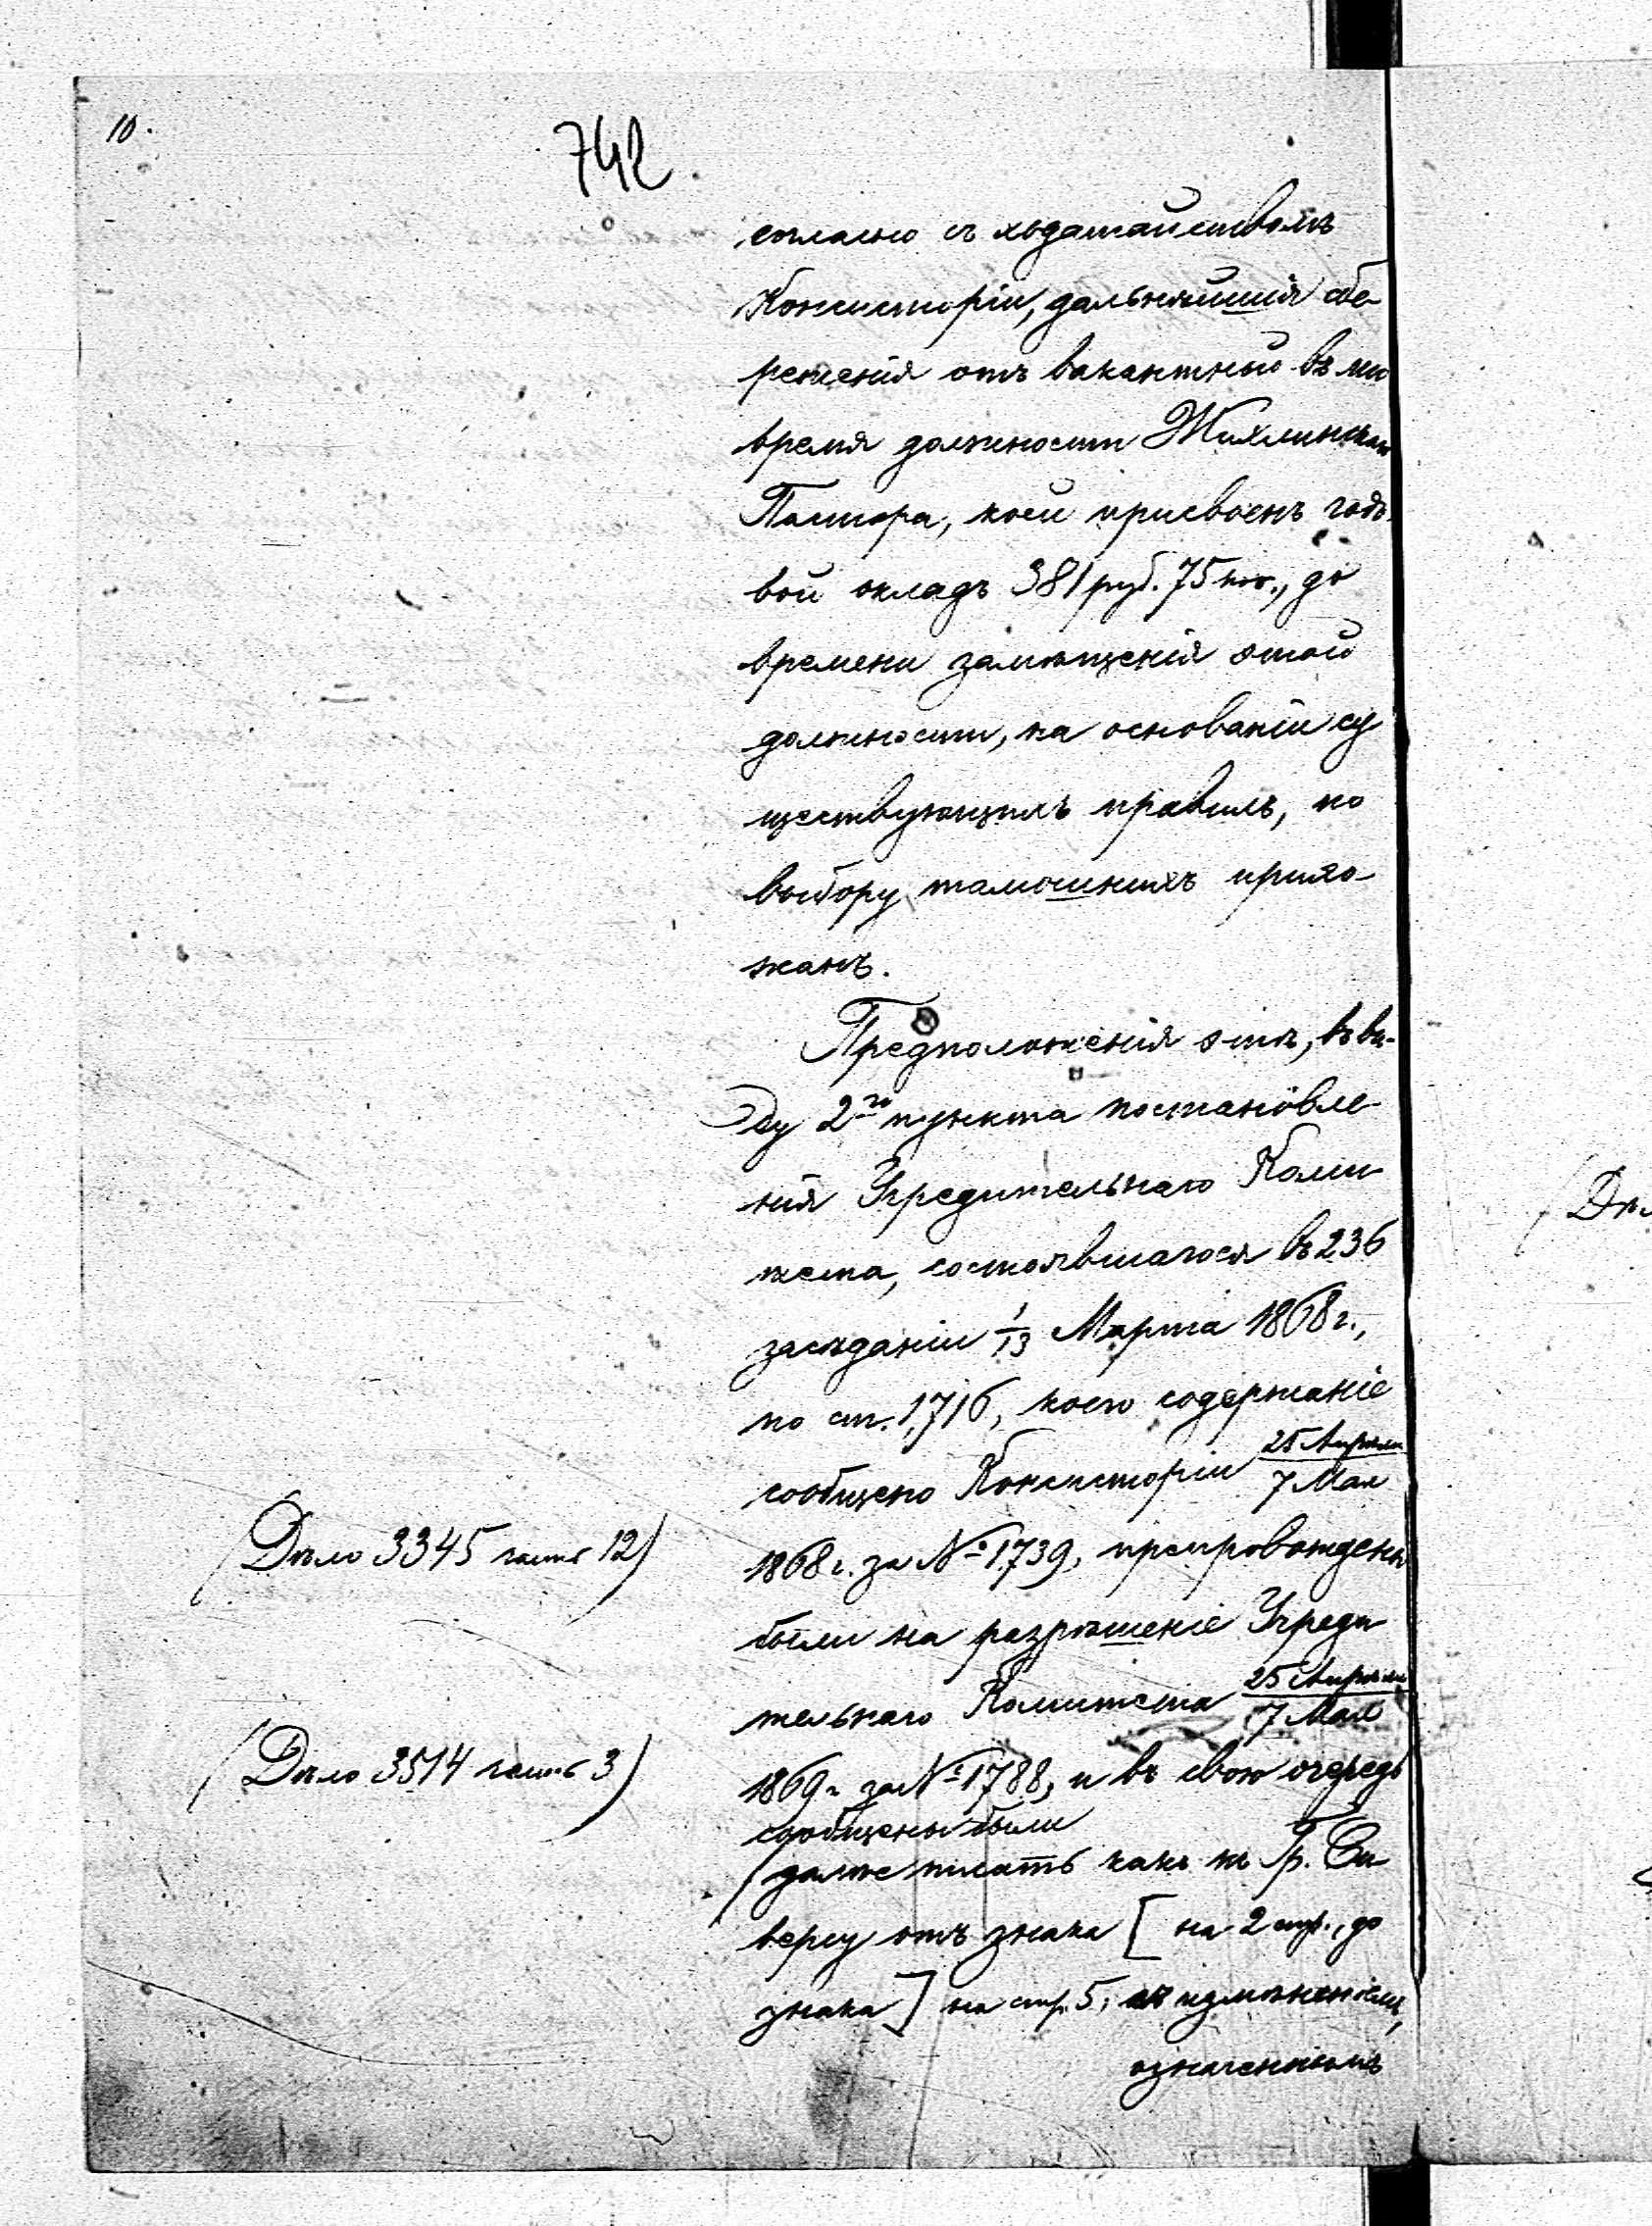 10.
742
согласно съ ходатайствомъ
Консисторіи, дальнѣйшія сбе-
реженія отъ вакантной въ то
время должности Жихлинскаго
Пастора, коей присвоенъ годо-
вой окладъ 381 руб. 75 коп., до
времени замѣщенія этой
должности, на основаніи су
ществующихъ правилъ, по
выбору тамошнихъ прихо-
жанъ.
Предположенія эти, въ ви-
ду 2го пункта постановле-
нія Учредительнаго Коми
тета, состоявшагося въ 236
засѣданіи 1/13 Марта 1868 г.,
по ст. 1,716, коего содержаніе
сообщено Консисторіи 25 Апрѣля / 7 Мая
(Дѣло 3345 часть 12)
1868 г. за № 1,739, препровождены
были на разрѣшеніе Учреди
тельнаго Комитета 25 Апрѣля / 7 Мая
(Дѣло 3514 часть 3)
1869 г. за № 1788, и въ свою очередь
сообщены были
(далѣе писать какъ къ Гр. Си
версу отъ знака [ на 2 стр., до
знака ] на стр. 5, съ измѣненіемъ,
означеннымъ